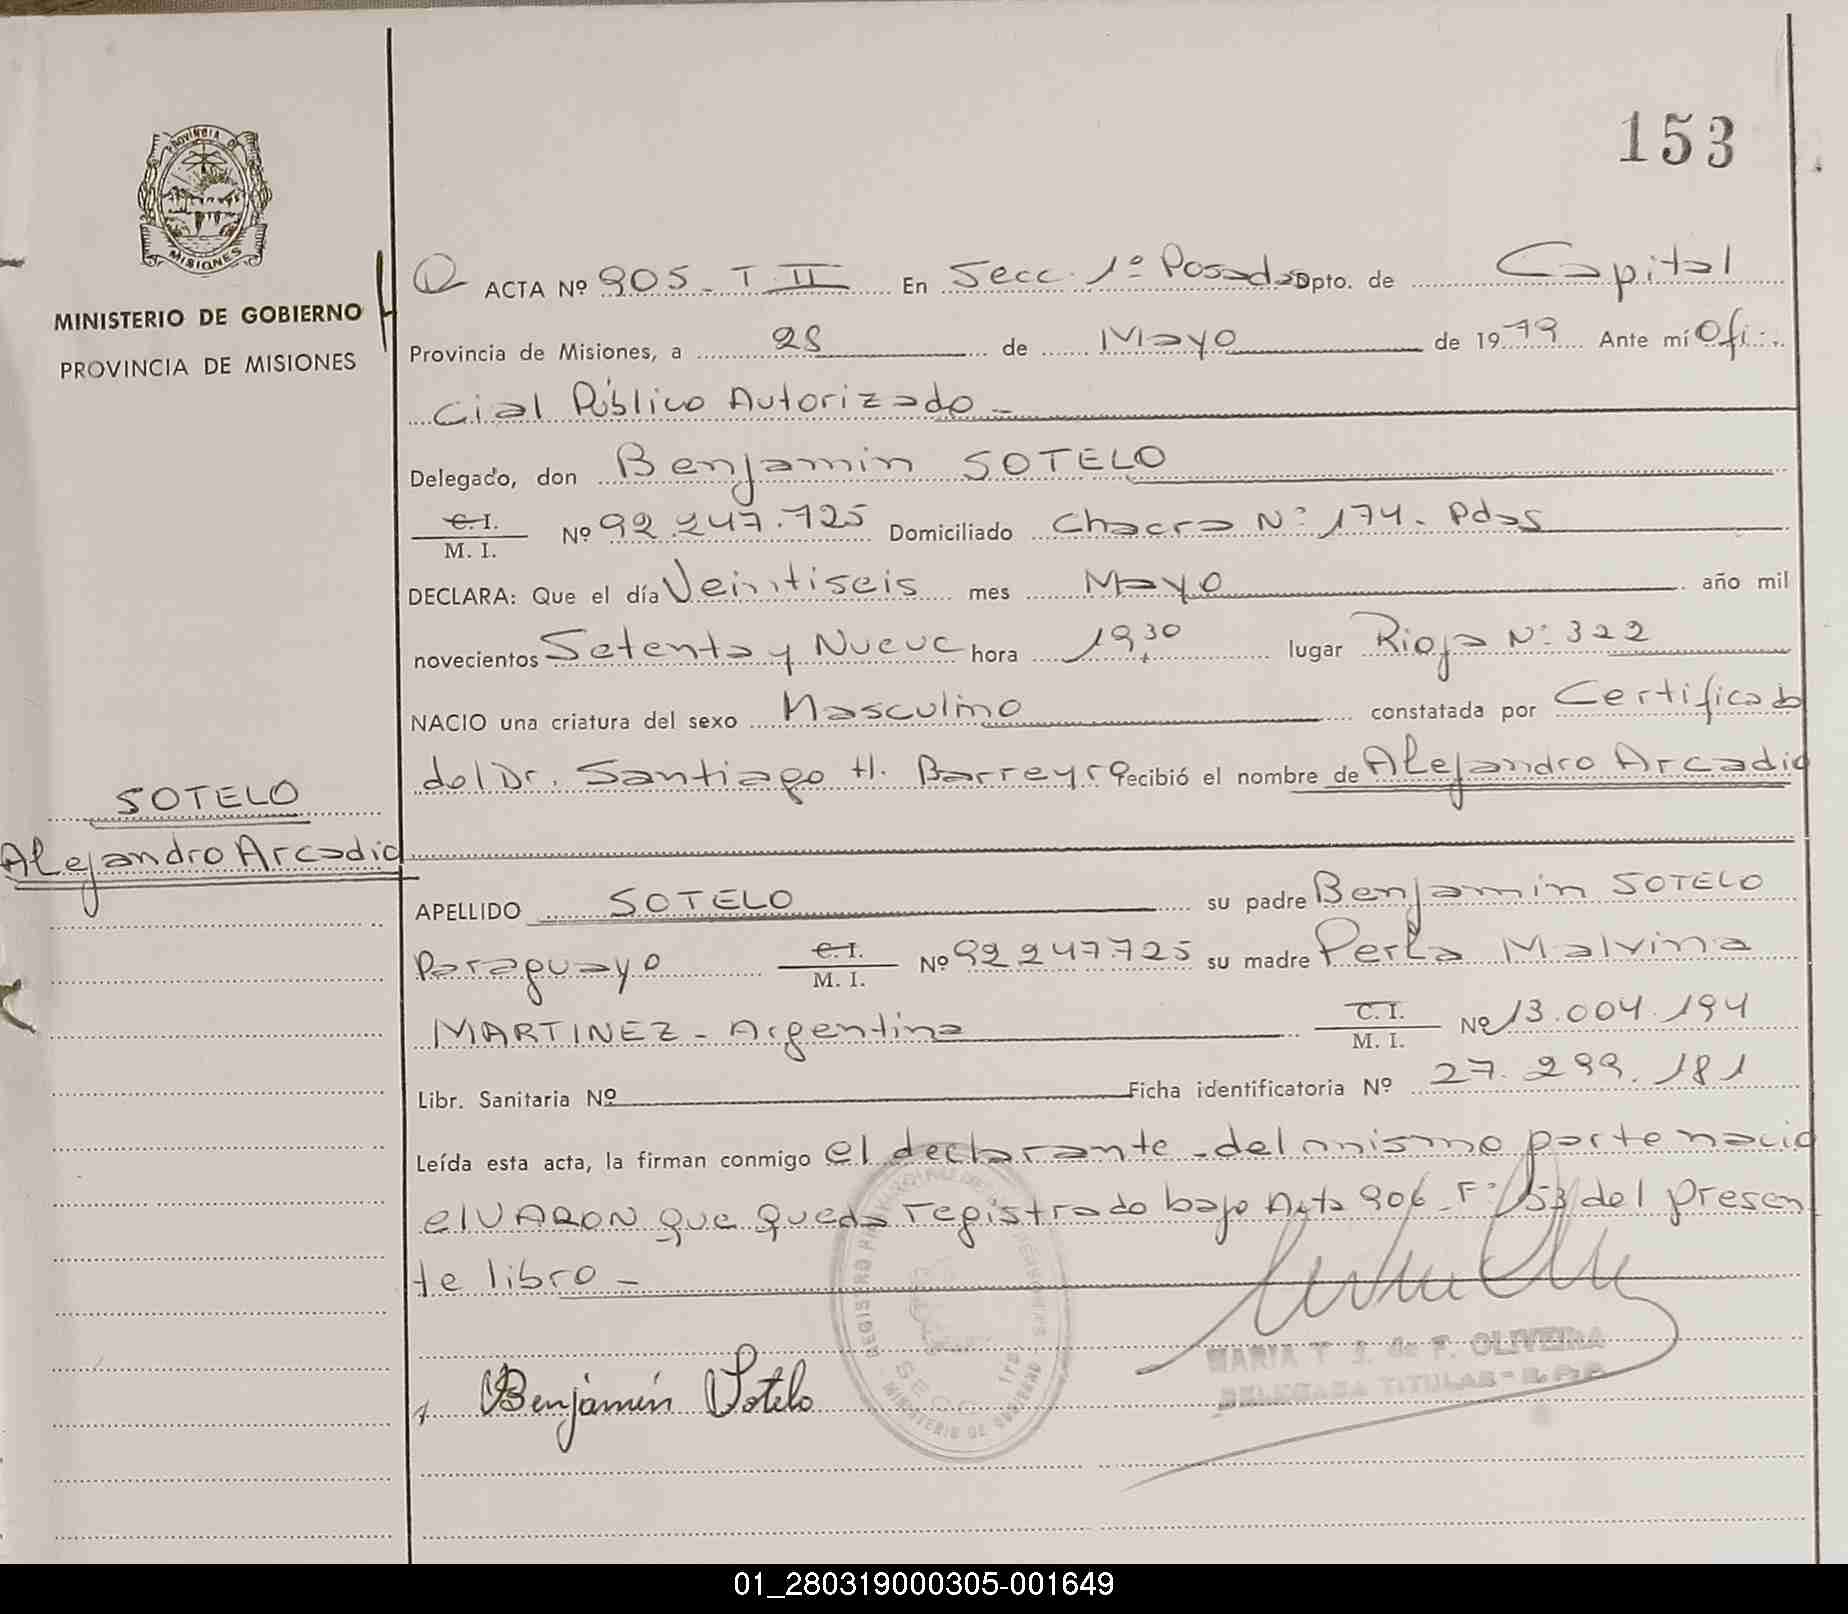 153
PROVINCIA DE
MISIONES
MINISTERIO DE GOBIERNO
PROVINCIA DE MISIONES
ACTA Nº 905 - T II En Secc. 1º Posadas Dpto. de Capital
Provincia de Misiones, a 28 de Mayo de 1979 Ante mí Ofi-
cial Público Autorizado -
Delegado, don Benjamin SOTELO
C. I. / M. I. Nº 92.247.725 Domiciliado Chacra Nº 174 - Pdas
DECLARA: Que el día Veintiseis mes Mayo año mil
novecientos Setenta y Nueve hora 19,30 lugar Rioja Nº 322
NACIO una criatura del sexo Masculino constatada por Certificado
del Dr. Santiago H. Barreyro recibió el nombre de Alejandro Arcadio
SOTELO
Alejandro Arcadio
APELLIDO SOTELO su padre Benjamin SOTELO
Paraguayo C. I. / M. I. Nº 92 247.725 su madre Perla Malvina
MARTINEZ - Argentina C. I. / M. I. Nº 13.004.194
Libr. Sanitaria Nº Ficha identificatoria Nº 27.299.181
Leída esta acta, la firman conmigo el declarante - del mismo parto nacio
el VARON que queda registrado bajo Acta 906 - Fº 153 del presen
te libro -
MARIA T. J. de F. OLIVEIRA
DELEGADA TITULAR - R. P. P.
Benjamín Sotelo
REGISTRO PROVINCIAL DE LAS PERSONAS
SECC. 1ra
MINISTERIO DE GOBIERNO
01_280319000305-001649